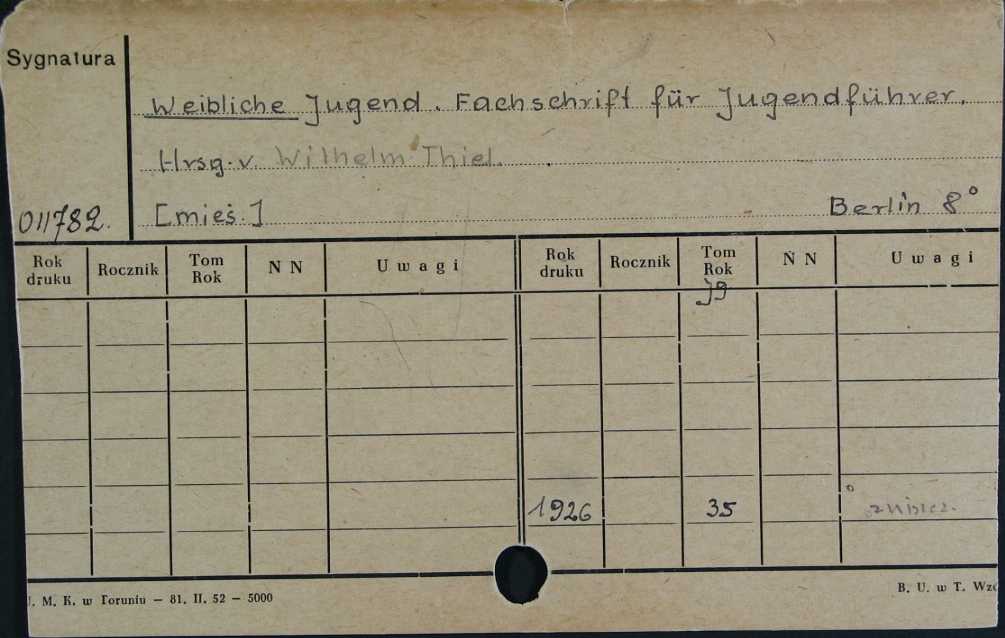 Sygnatura
Weibliche Jugend. Fachschrift für Jugendführer.
Hrsg. v. Wilhelm Thiel.
011782. [mies.] Berlin 8°
Rok druku Rocznik Tom Rok N N Uwagi Rok druku Rocznik Tom Rok N N Uwagi
Jg
1926 35 zniszcz.
U. M. K. w Toruniu — 81. II. 52 — 5000 B. U. w T.